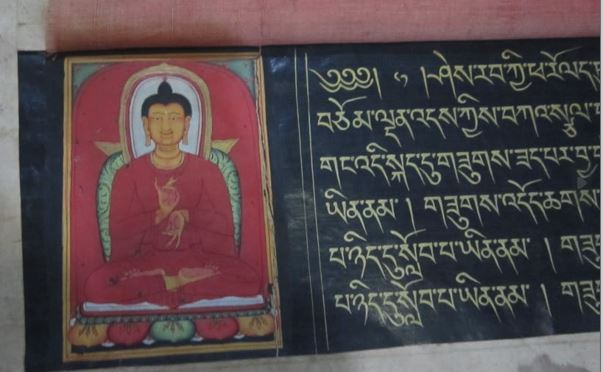 ༄༅༅། །ཤེས་རབ་ཀྱི་ཕ་རོལ་
བཅོམ་ལྡན་འདས་ཀྱིས་བཀའ་སྩལ་
གང་འདི་སྐད་དུ་གཟུགས་ཟད་པར་བྱ་
ཡིན་ནམ་ ། གཟུགས་འདོད་ཆགས་
པ་ཉིད་དུ་སློབ་པ་ཡིན་ནམ་ །
པ་ཉིད་དུ་སློབ་པ་ཡིན་ནམ་ །